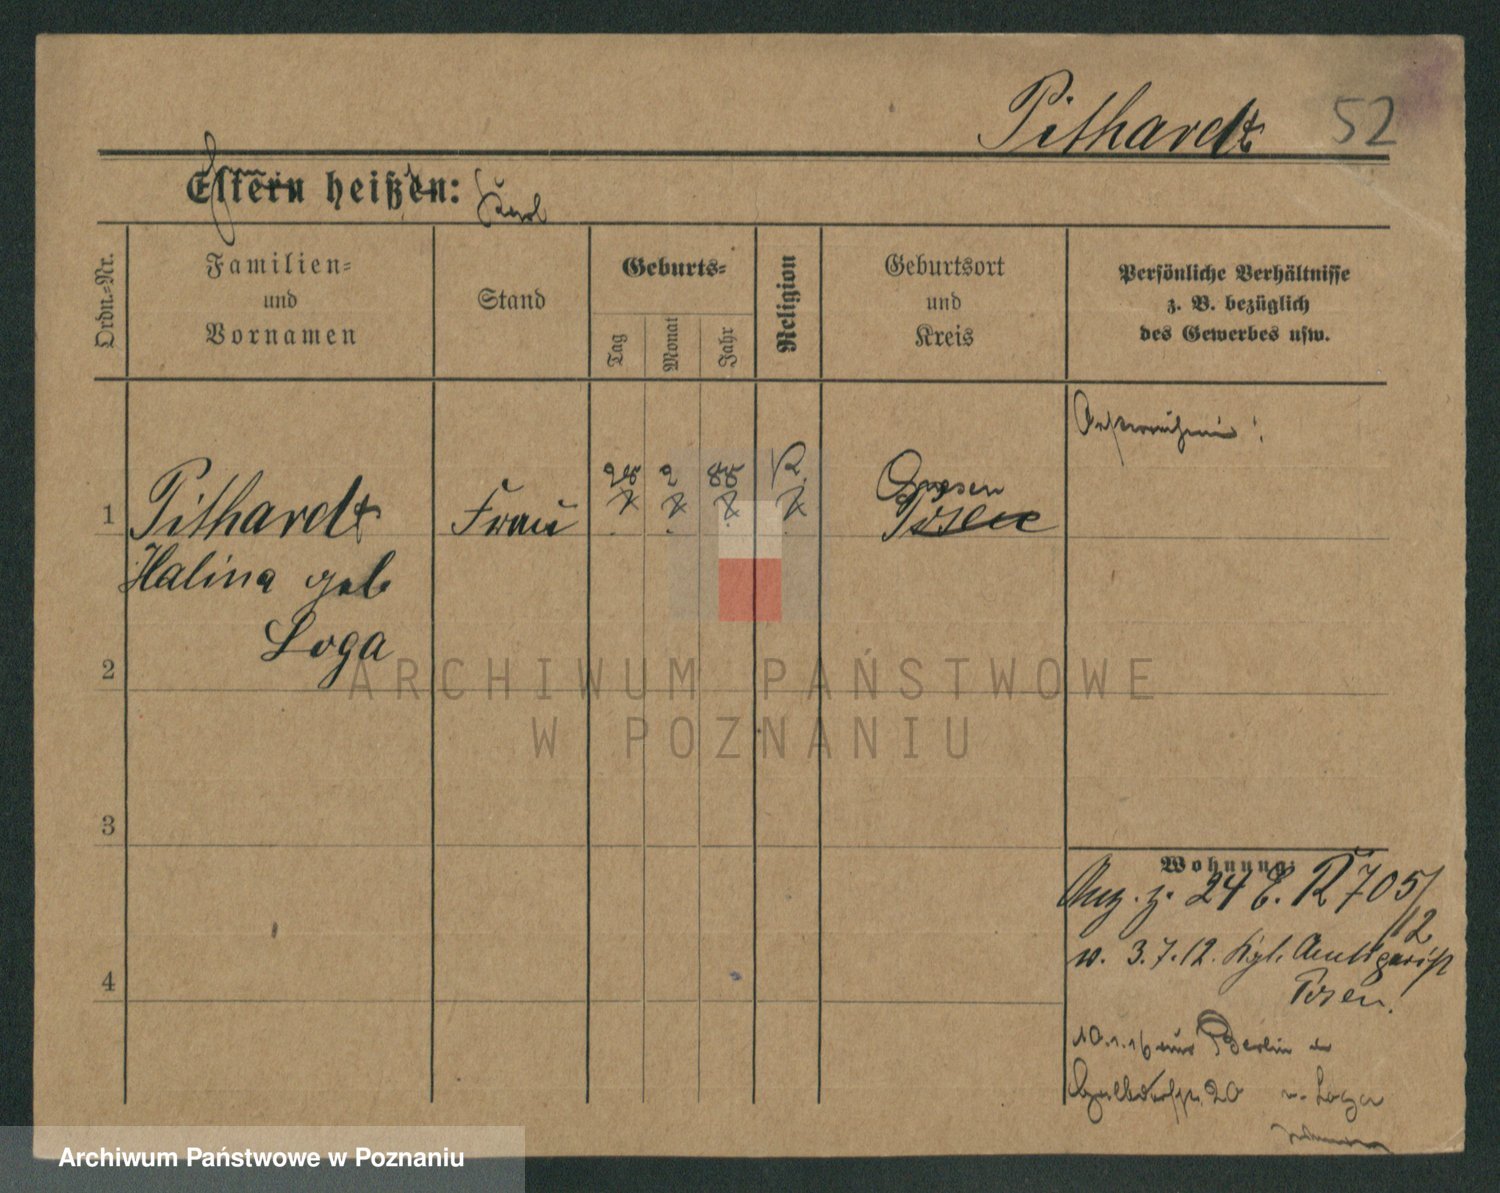 Pithardt 52
Eltern heißen: Karl
Ordn.=Nr.
Familien=
und
Vornamen
Stand
Geburts=
Tag
Monat
Jahr
Religion
Geburtsort
und
Kreis
Persönliche Verhältnisse
z. B. bezüglich
des Gewerbes usw.
28 2 88
Gnesen
1 Pithardt Frau Posen
Halina geb
Loga
2
3
4
Wohnung:
24 C. R 705/
12
v. 3.7.12. Kgl. Amtsgericht
Posen!
10.1.16 aus Berlin
20 v. Loga
ARCHIWUM PAŃSTWOWE
W POZNANIU
Archiwum Państwowe w Poznaniu